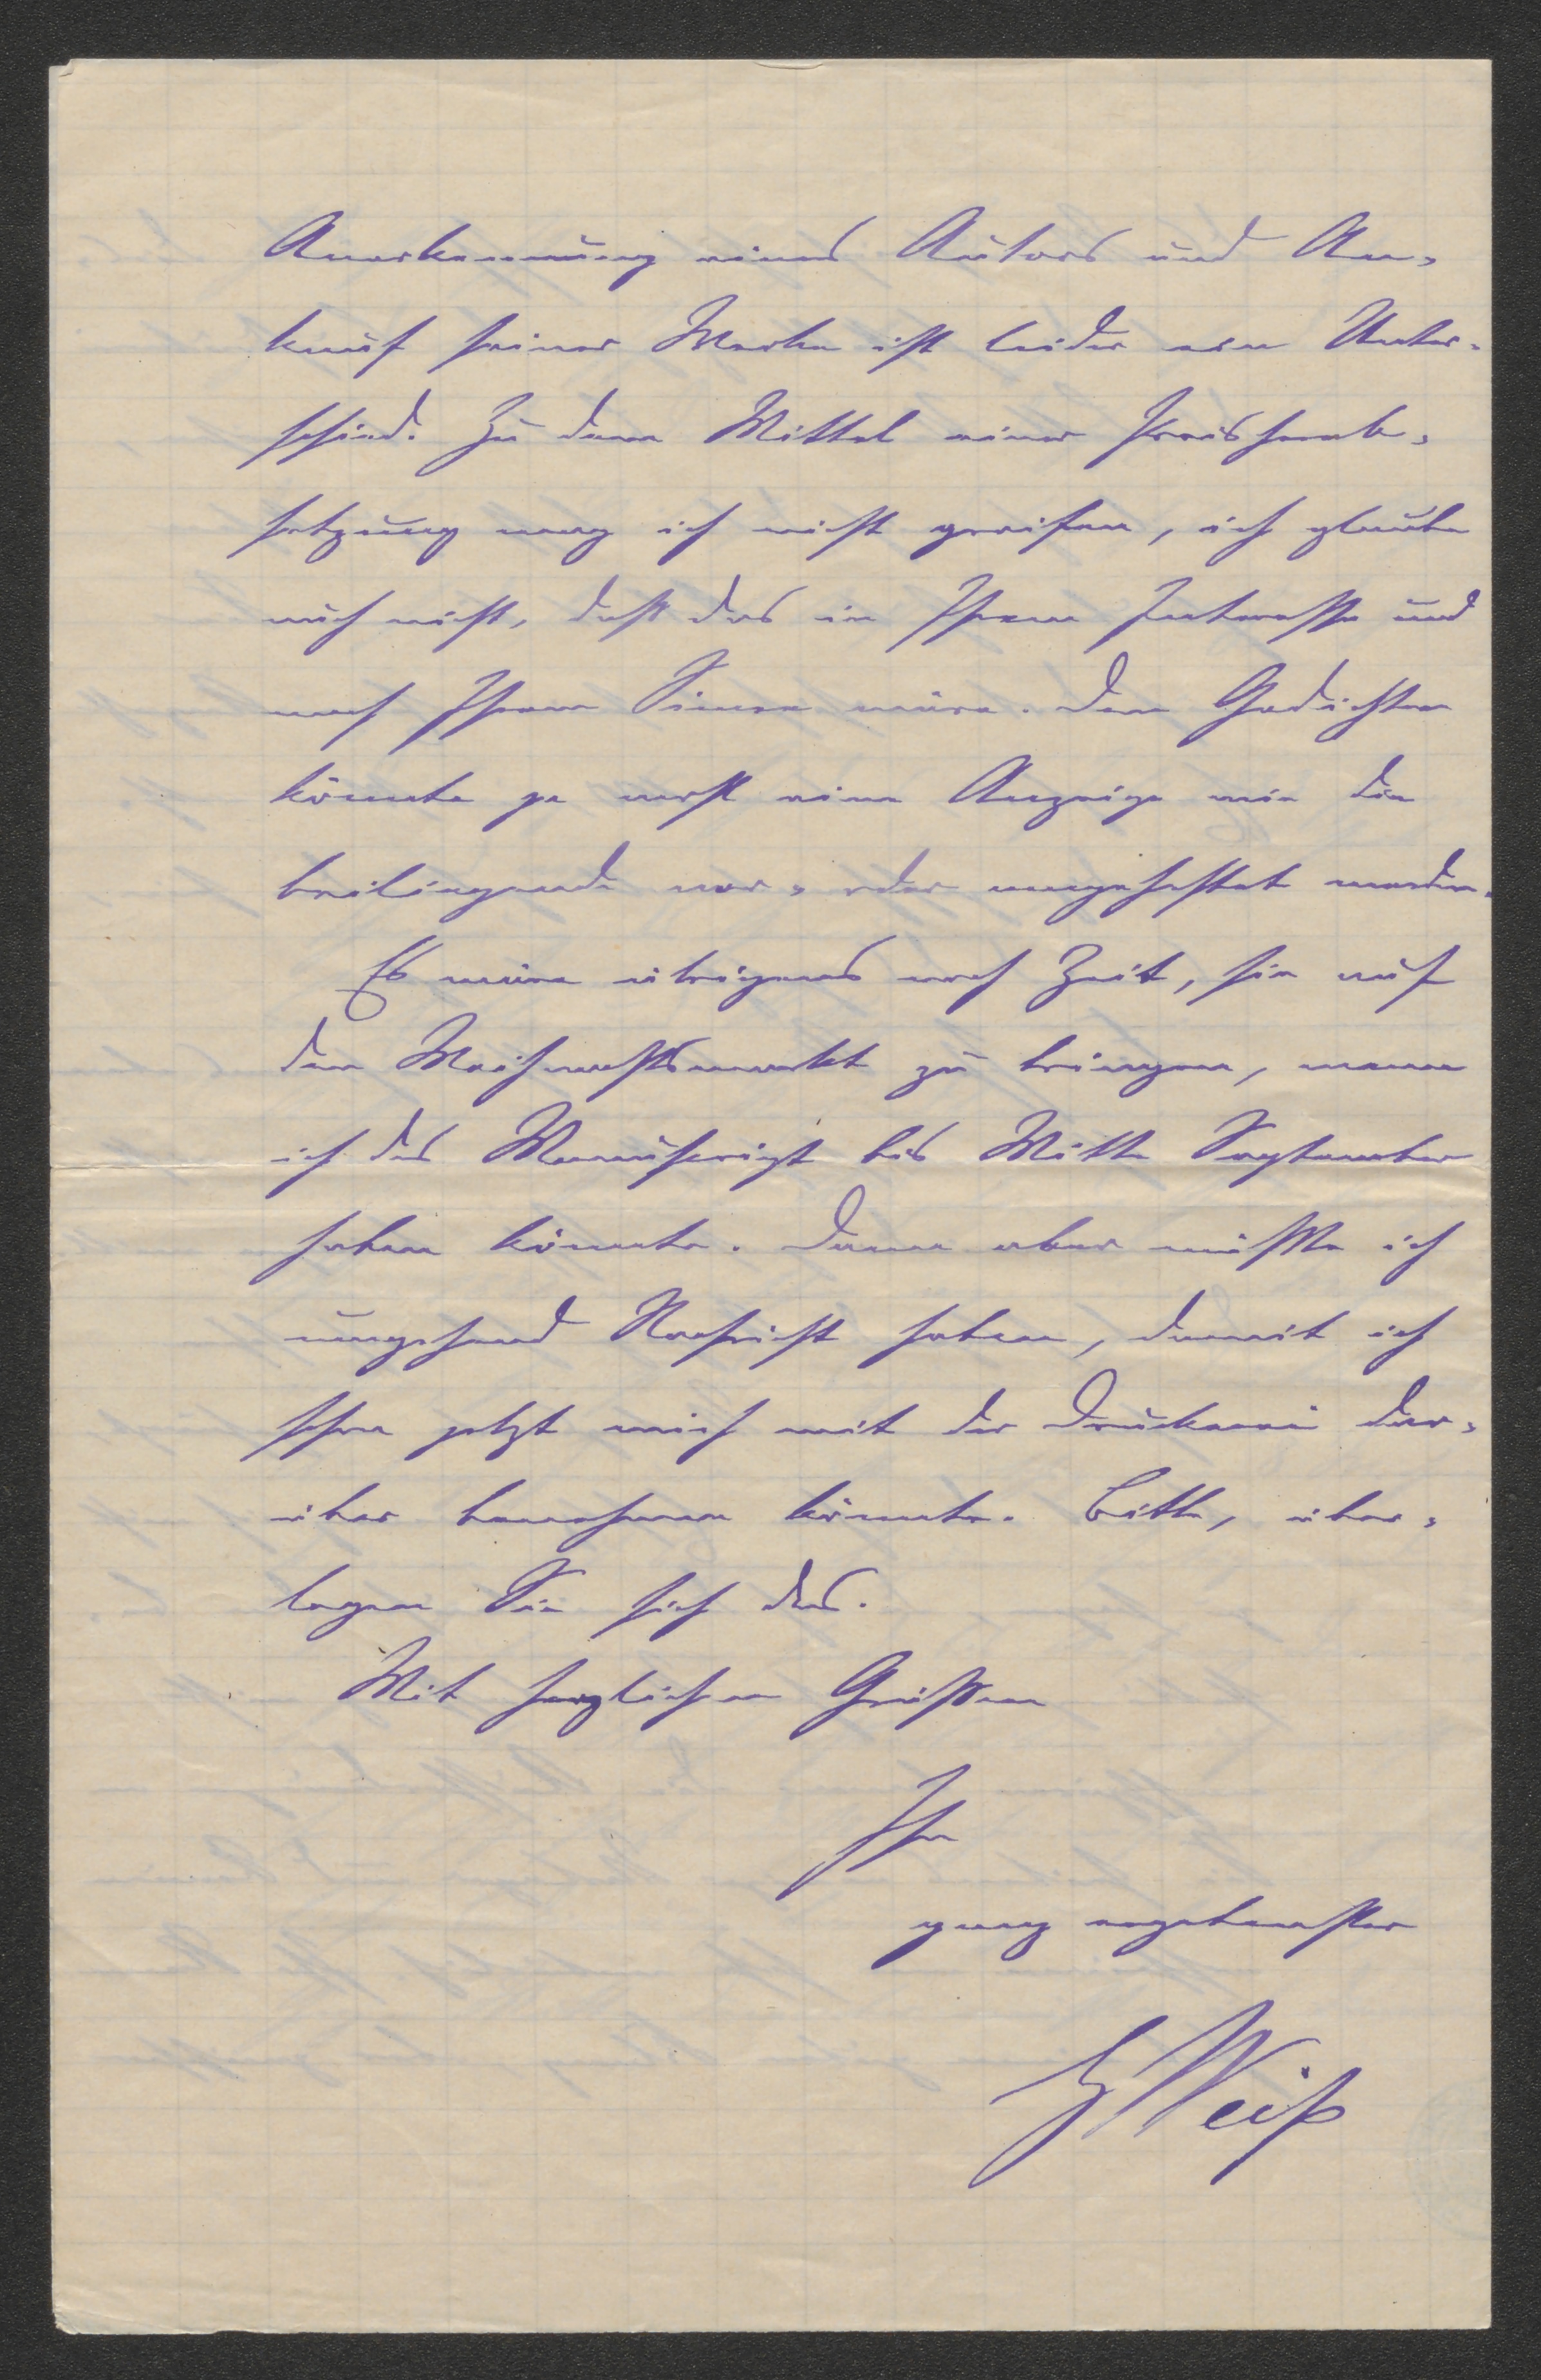 Anerkennung eines Autors und An-
kauf seiner Werke ist leider ein Unter-
schied. Zu dem Mittel einer Preisherab-
setzung mag ich nicht greifen, ich glaube
auch nicht, daß das in Ihrem Interesse und
nach Ihrem Sinne wäre. Den Gedichten
könnte ja erst eine Anzeige wie die
beiliegende vor- oder angeheftet werden.
Es wäre übrigens noch Zeit, sie auf
den Weihnachtsmarkt zu bringen, wenn
ich das Manuskript bis Mitte September
haben könnte. Dann aber müßte ich
umgehend Nachricht haben, damit ich
schon jetzt mich mit der Druckerei dar-
über benehmen könnte. Bitte, über-
legen Sie sich das.
Mit herzlichen Grüßen
Ihr
ganz ergebenster
Weiß